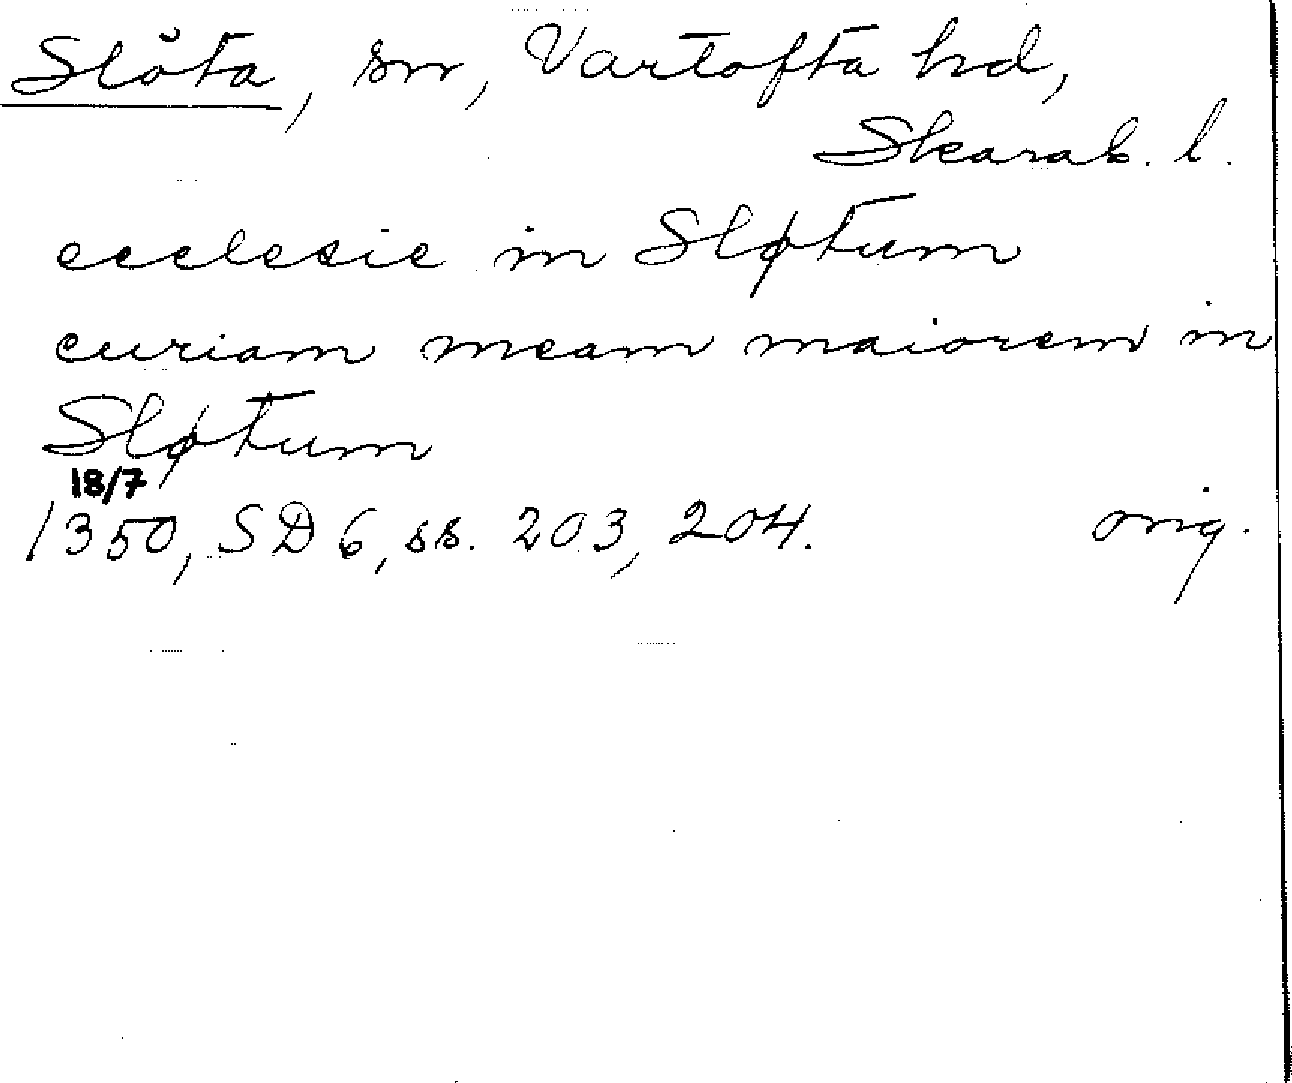 Slöta, sn, Vartofta hd,
Skarab. l.
ecclesie in Sløtum
curiam meam maiorem in
Sløtum
18/7
1350, SD 6, ss. 203, 204. orig.